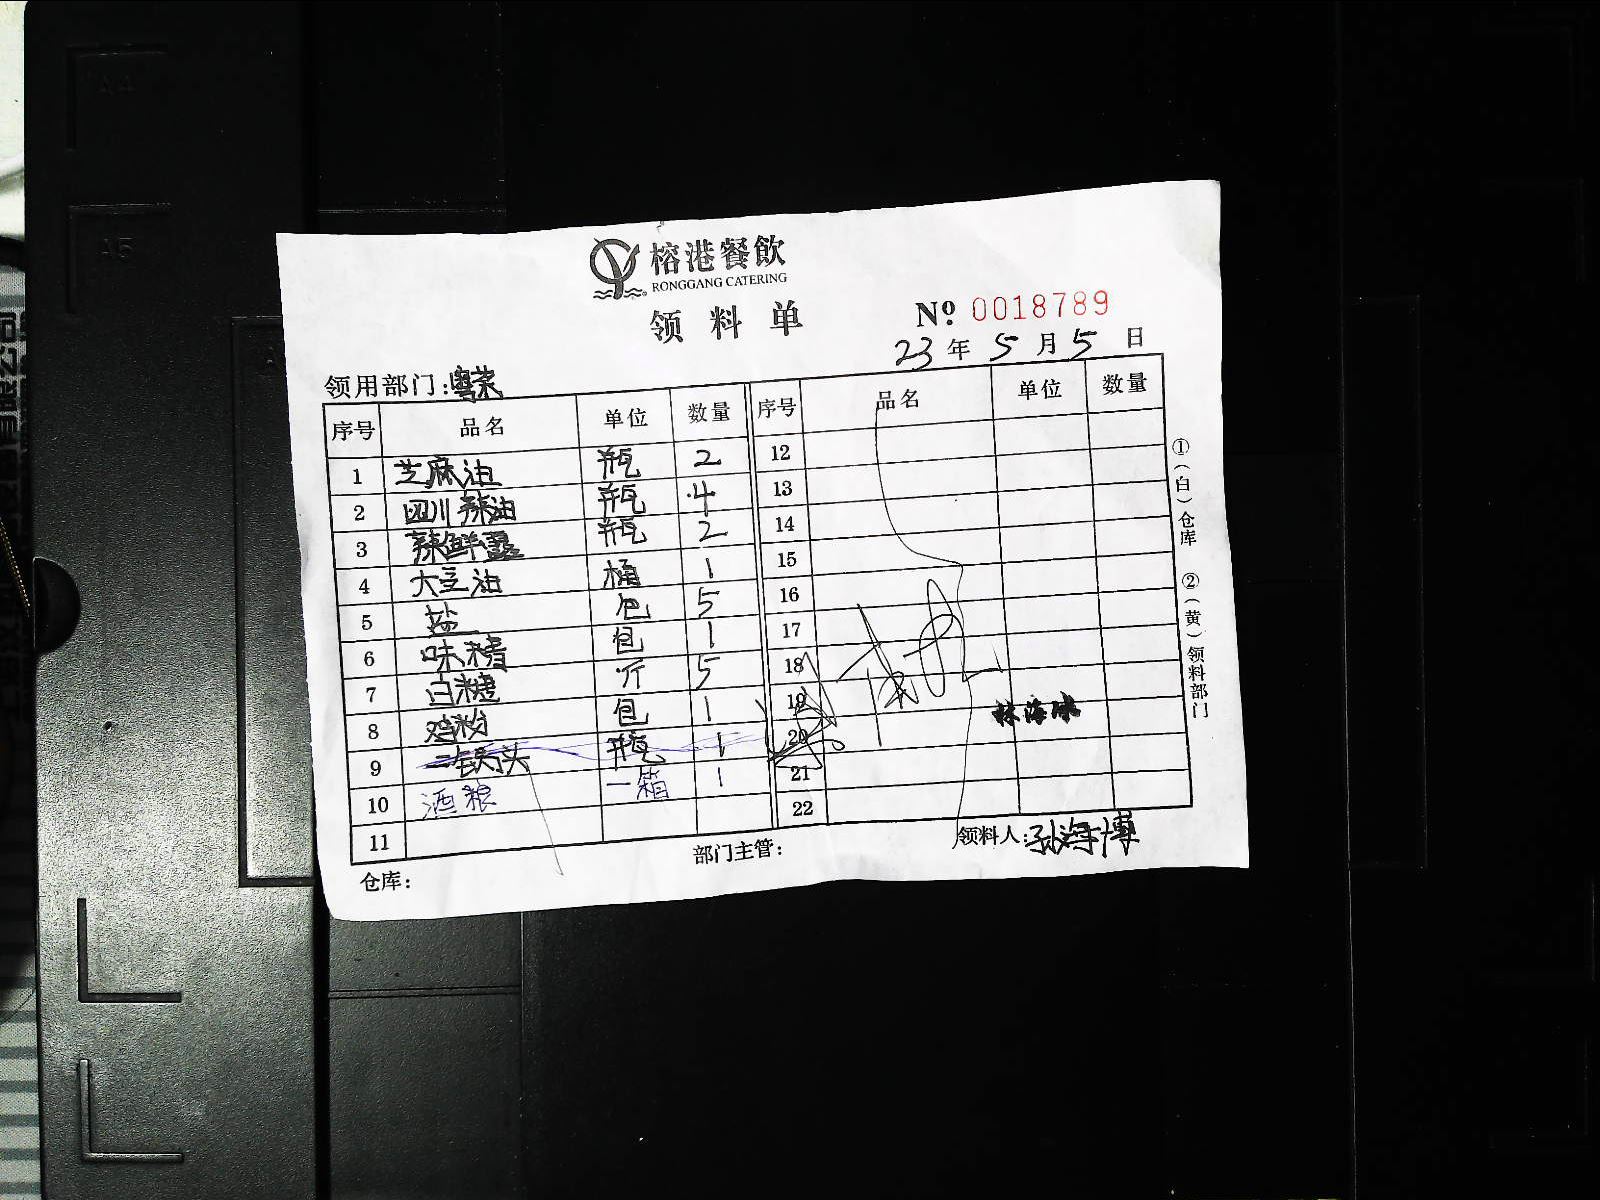 榕港餐飲
RONGGANG CATERING
领料单
No. 0018789
23年5月5日
领用部门:粤菜
序号 品名 单位 数量 序号 品名 单位 数量
1 芝麻油 瓶 2 12
2 四川辣油 瓶 4 13
3 辣鲜露 瓶 2 14
4 大豆油 桶 1 15
5 盐 包 5 16
6 味精 包 1 17
7 白糖 斤 5 18
8 鸡粉 包 1 19
9 二锅头 瓶 1 20
10 酒粮 一箱 1 21
11 22
仓库: 部门主管: 领料人:孙海博
①(白)仓库 ②(黄)领料部门
A4
A5